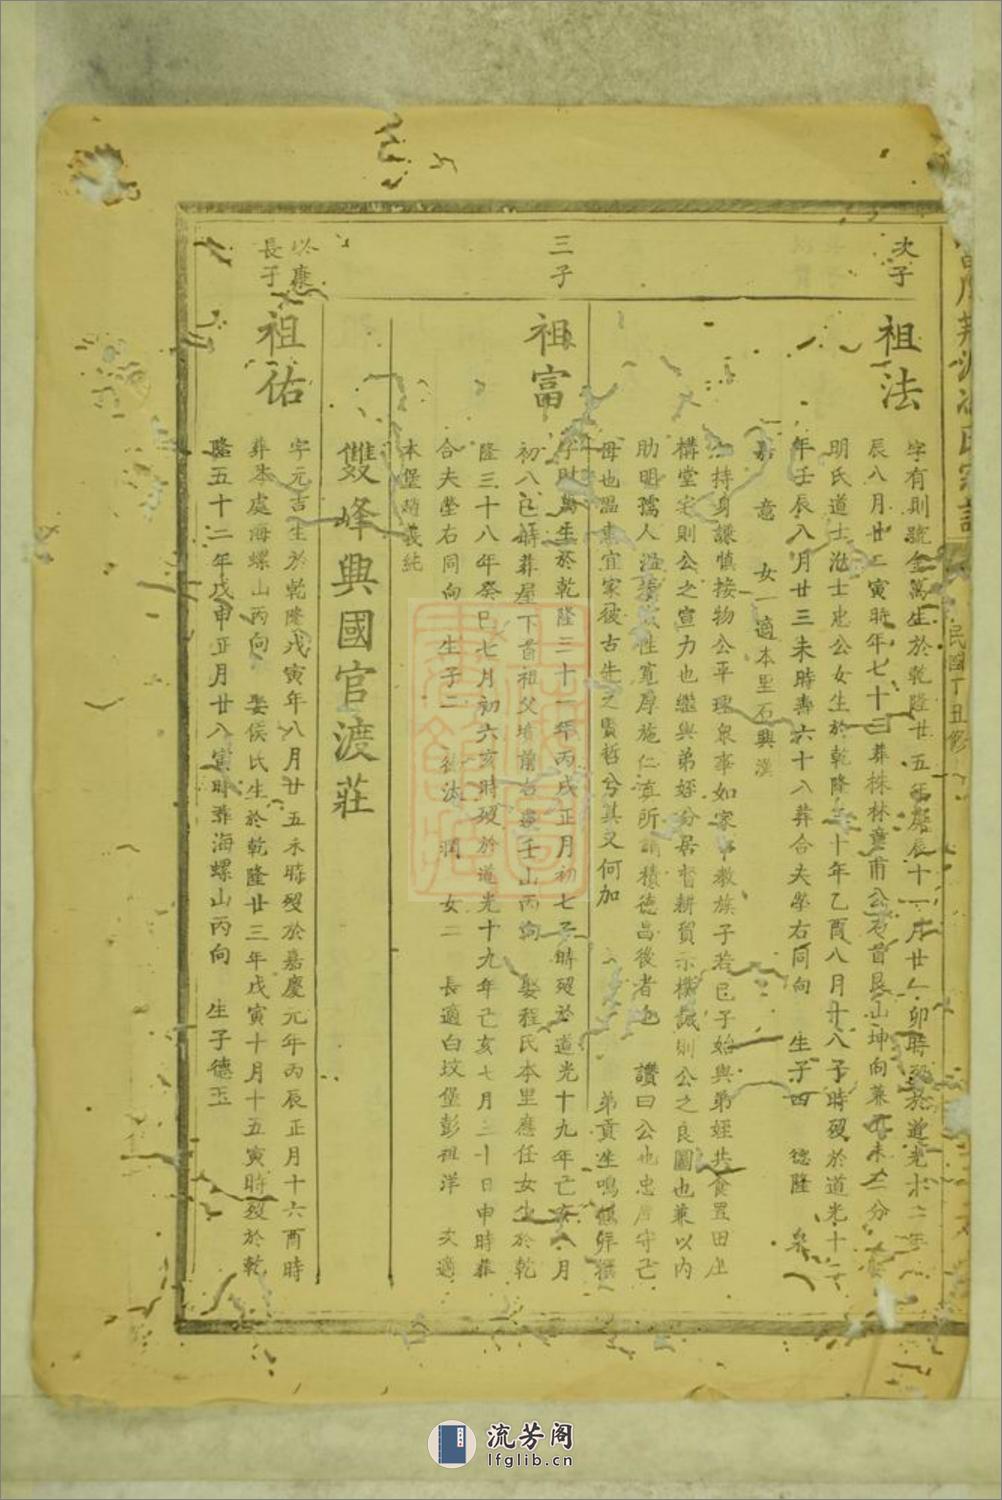 民國丁丑修
次子
祖法
字有則號金萬生於乾隆廿五年庚辰十一月廿八卯時歿於道光十二年
辰八月廿二寅時年七十三葬株林董甫公右首艮山坤向兼丑未二分
明氏道士池士忠公女生於乾隆三十年乙酉八月十八子時歿於道光十二
年壬辰八月廿三未時壽六十八葬合夫塋右同向 生子四 德隆 泉
嘉 意 女一適本里石興漢
持身謙慎接物公平理眾事如家事教族子若己子始與弟姪共食置田坐
構堂宅則公之宣力也繼與弟姪分居督耕貿示樸誠則公之良圖也兼以內
助明孺人溫柔成性寬厚施仁真所謂積德昌後者也 讚曰公也忠厚守己
母也溫惠宜家彼古先之賢哲兮其又何加 弟貢生鳴鶴拜撰
三子
祖富
字財萬生於乾隆三十一年丙戌正月初七子時歿於道光十九年亡亥八月
初八巳時葬屋下首祖父墳前右邊壬山丙向 娶程氏本里應任女生於乾
隆三十八年癸巳七月初六亥時歿於道光十九年己亥七月三十日申時葬
合夫塋右同向 生子二 德汰 潤 女二 長適白坟堡彭祖洋 次適
本堡趙義純
雙峰興國官渡莊
以康
長子
祖佑
字元吉生於乾隆戊寅年八月廿五未時歿於嘉慶元年丙辰正月十六酉時
葬本處海螺山丙向 娶侯氏生於乾隆廿三年戊寅十月十五寅時歿於乾
隆五十二年戊申正月廿八寅時葬海螺山丙向 生子德玉
流芳阁
lfglib.cn